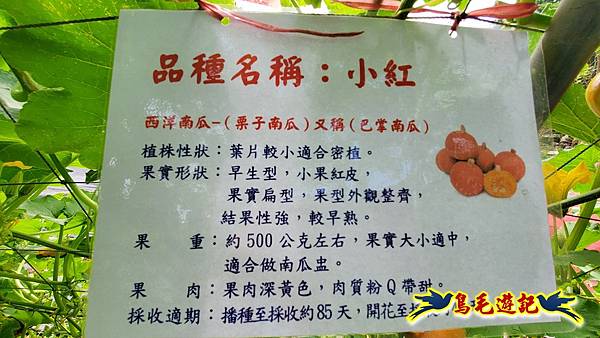 品種名稱：小紅
西洋南瓜-(栗子南瓜)又稱(巴掌南瓜)
植株性狀：葉片較小適合密植。
果實形狀：早生型，小果紅皮，
果實扁型，果型外觀整齊，
結果性強，較早熟。
果 重：約500公克左右，果實大小適中，
適合做南瓜盅。
果 肉：果肉深黃色，肉質粉Q帶甜。
採收適期：播種至採收約85天，開花至採
鳥毛遊記